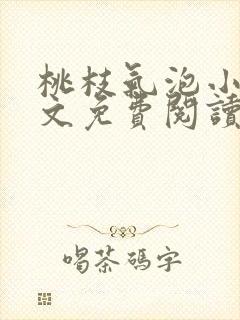 桃枝氣泡小
文免費閱讀
喝茶碼字